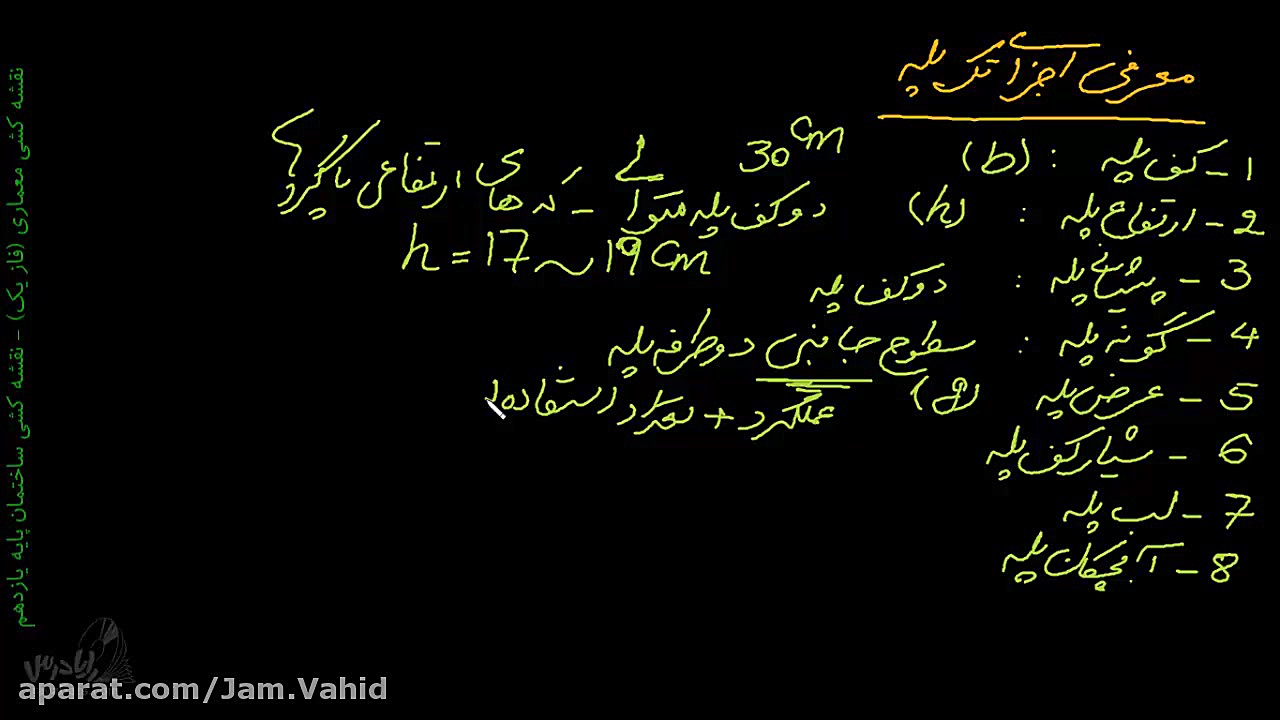 معرفی اجزای تک پله
1- کف پله : (b) 30 cm
2- ارتفاع پله : (h) دو کف پله متوالی - نه های ارتفاعی پاگرد
h = 17 ~ 19 cm
3- پیشانی پله : دو کف پله
4- گونه پله : سطوح جانبی دو طرفه پله
5- عرض پله (a) عملکرد + تعداد استفاده ا
6- شیار کف پله
7- لب پله
8- آبچکان پله
نقشه کشی معماری (فاز یک) - نقشه کشی ساختمان پایه یازدهم
aparat.com/Jam.Vahid